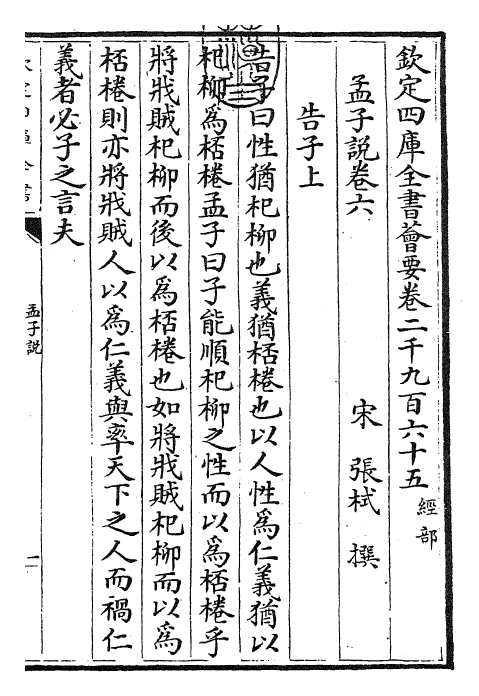 欽定四庫全書薈要卷二千九百六十五 經部
孟子說卷六
宋 張栻 撰
告子上
告子曰性猶杞柳也義猶桮棬也以人性為仁義猶以
杞柳為桮棬孟子曰子能順杞柳之性而以為桮棬乎
將戕賊杞柳而後以為桮棬也如將戕賊杞柳而以為
桮棬則亦將戕賊人以為仁義與率天下之人而禍仁
義者必子之言夫
孟子說
一